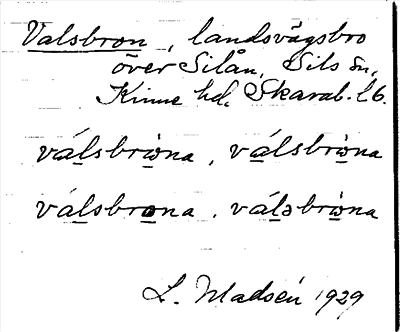 Valsbron, landsvägsbro
över Silån, Sils sn,
Kinne hd, Skarab. l6.
válsbròna, válsbròna
válsbrona, váləbròna
L. Madsén 1929